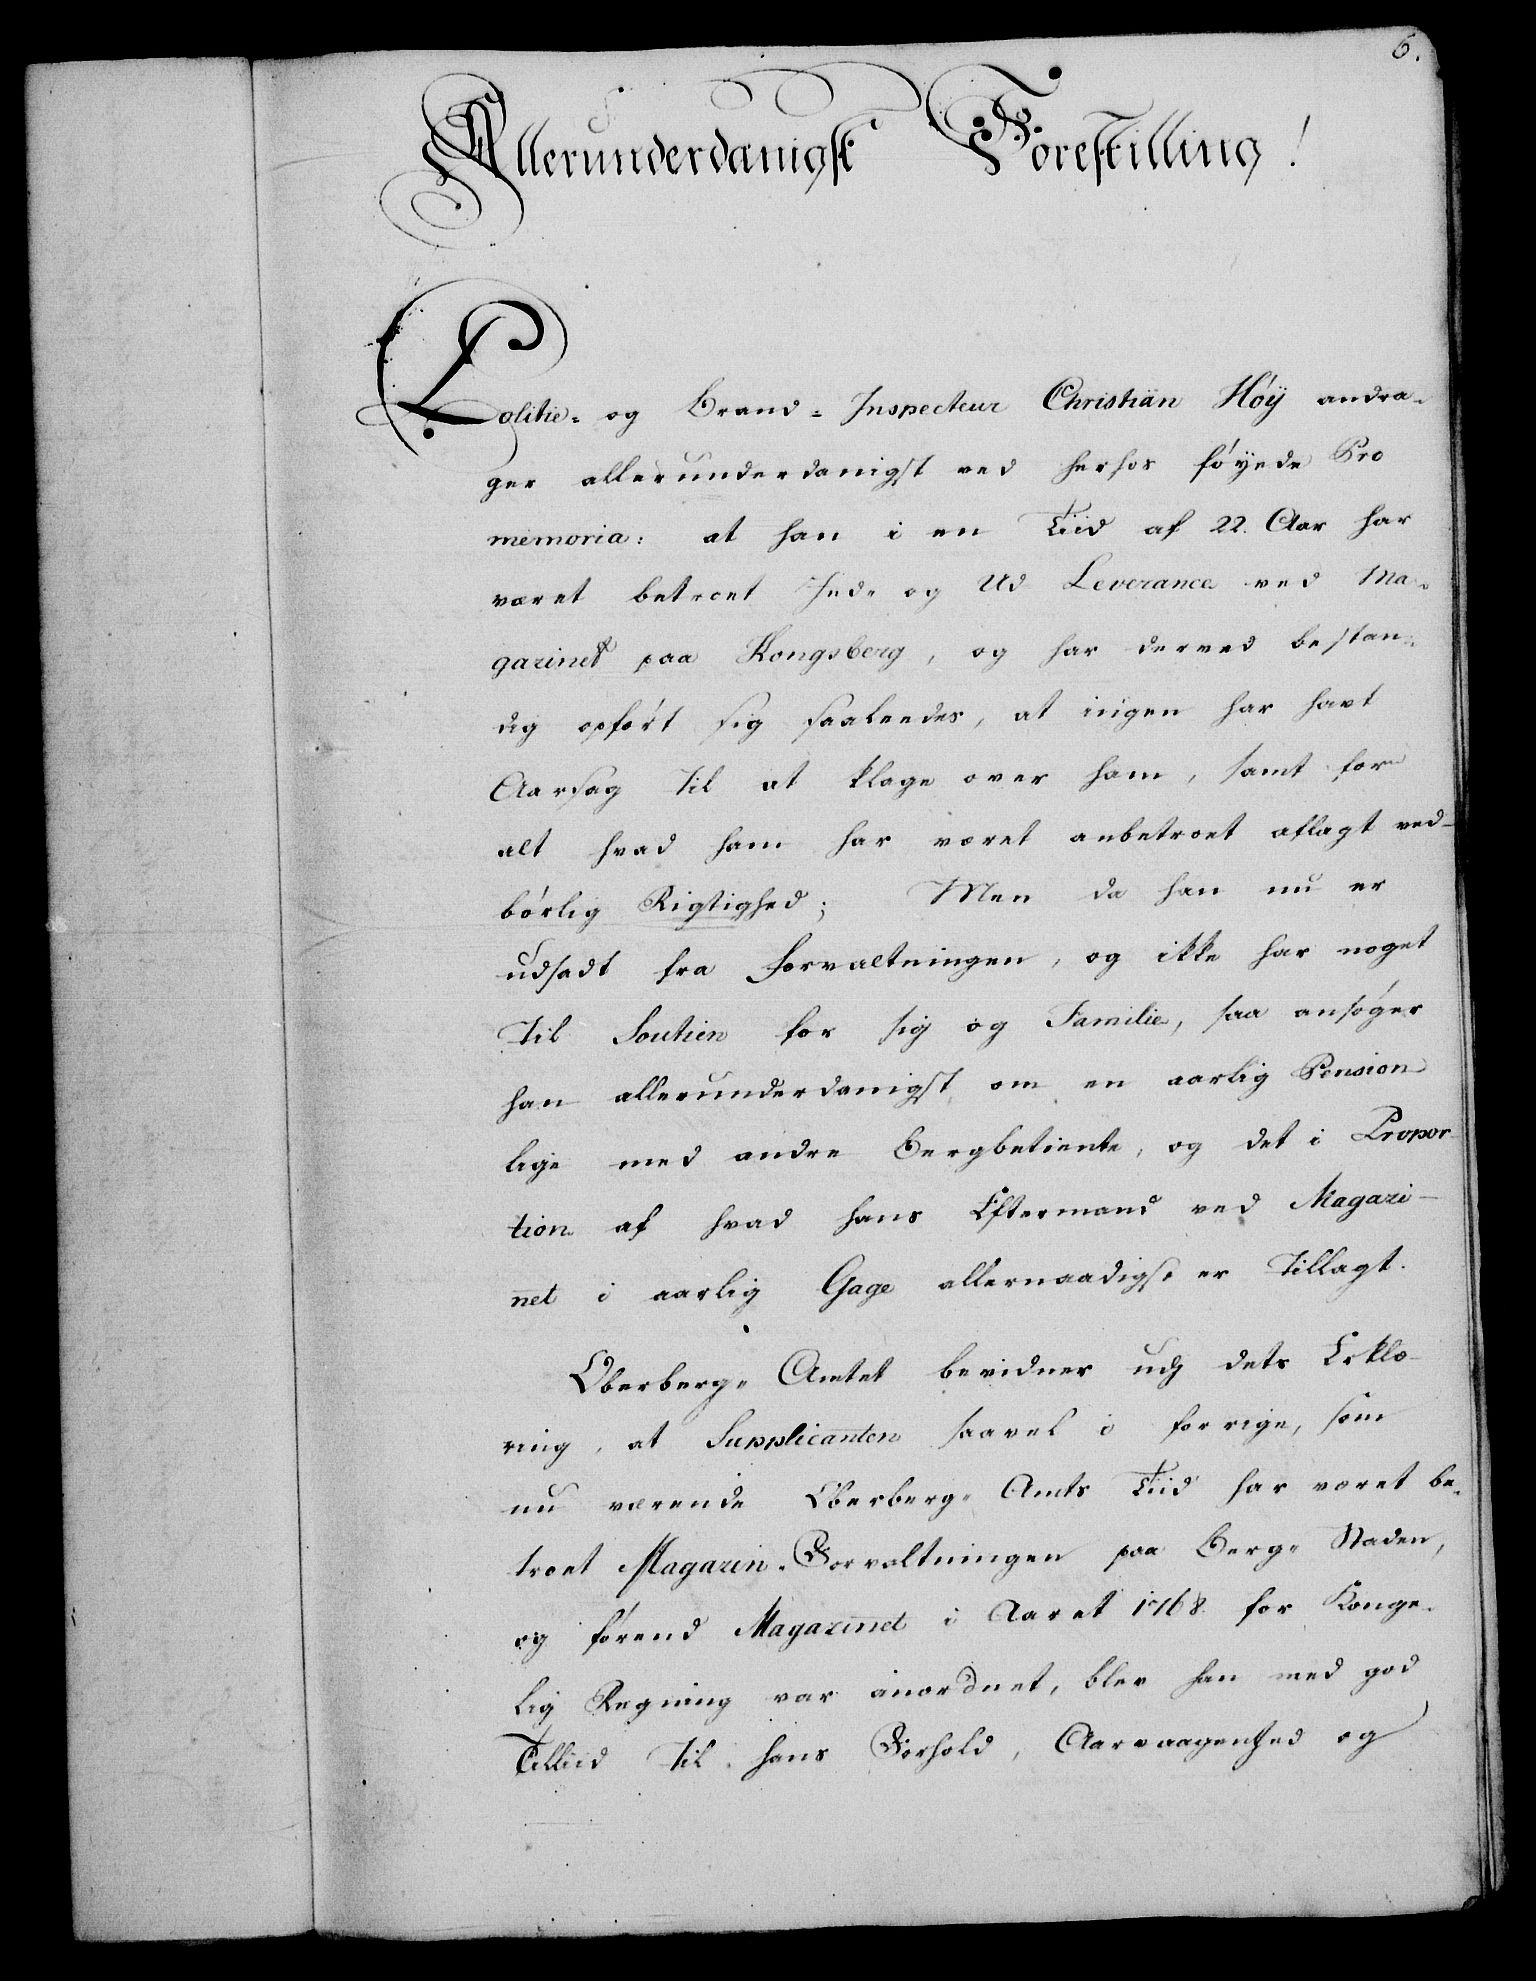 6.
Allerunderdanigst Forestilling!
Politie- og Brand-Inspecteur Christian Höÿ andra-
ger allerunderdanigst ved herhos föÿede Pro
memoria: at han i en Tiid af 22. Aar har
været betroet Ind- og Ud Leverance ved Ma-
gazinet paa Kongsberg, og har derved bestan-
dig opfört sig saaleedes, at ingen har havt
Aarsag til at klage over ham, samt for
alt hvad ham har været anbetroet aflagt ved-
börlig Rigtighed; Men da han nu er
udsadt fra Forvaltningen, og ikke har noget
til Soutien for sig og Familie, saa ansöger
han allerunderdanigst om en aarlig Pension
lige med andre Bergbetiente, og det i Propor-
tion af hvad hans Eftermand ved Magazi-
net i aarlig Gage allernaadigst er tillagt.
Oberberg- Amtet bevidner udj dets Erklæ-
ring, at Supplicanten saavel i forrige, som
nu værende Oberberg- Amts Tiid har været be-
troet Magazin-Forvaltningen paa Berg- Staden,
og förend Magazinet i Aaret 1768 for Konge-
lig Regning var anordnet, blev han med god
Tilliid til hans Forhold, Aarvaagenhed og